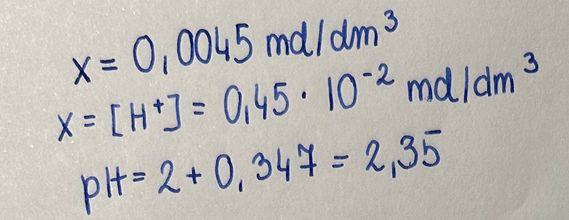 x = 0,0045 mol/dm³
x = [H⁺] = 0,45 · 10⁻² mol/dm³
pH = 2 + 0,347 = 2,35